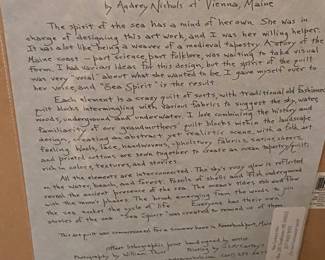 by Audrey Nichols of Vienna, Maine
The spirit of the sea has a mind of her own. She was in
charge of designing this art work, and I was her willing helper.
It was a lot like being a weaver of a medieval tapestry. A story of the
Maine coast - part science, part folklore, was waiting to take visual
form. I had various ideas for this design, but the spirit of the quilt
was very "vocal" about what she wanted to be. I gave myself over to
her voice, and "Sea Spirit" is the result.
Each element is a crazy quilt of sorts, with traditional old fashioned
quilt blocks intermingling with various fabrics to suggest the sky, water,
woods, underground and underwater. I love combining the history and
familiarity of our grandmothers' quilt blocks with the landscape
design, creating an abstract yet realistic scene, with a folk art
feeling. Wools, lace, handwovens, upholstery fabrics, satins, sheers,
and printed cottons are sewn together to create an ocean tapestry/quilt,
rich in colors, textures and stories.
All the elements are interconnected. The sky's rosy glow is reflected
in the water, beach and forest. Fossils of shells and fish underground
reveal the ancient presence of the sea. The ocean's tides rise and flow
with the moon's phases. The
the sea under the cycle of life. Everyone has their own
stories of the sea. "Sea Spirit" was created to remind us of them.
This art quilt was commissioned for a summer home in Kennebunkport, Maine
Offset lithographic print hand signed by artist
Photography by William Thuss Printing by